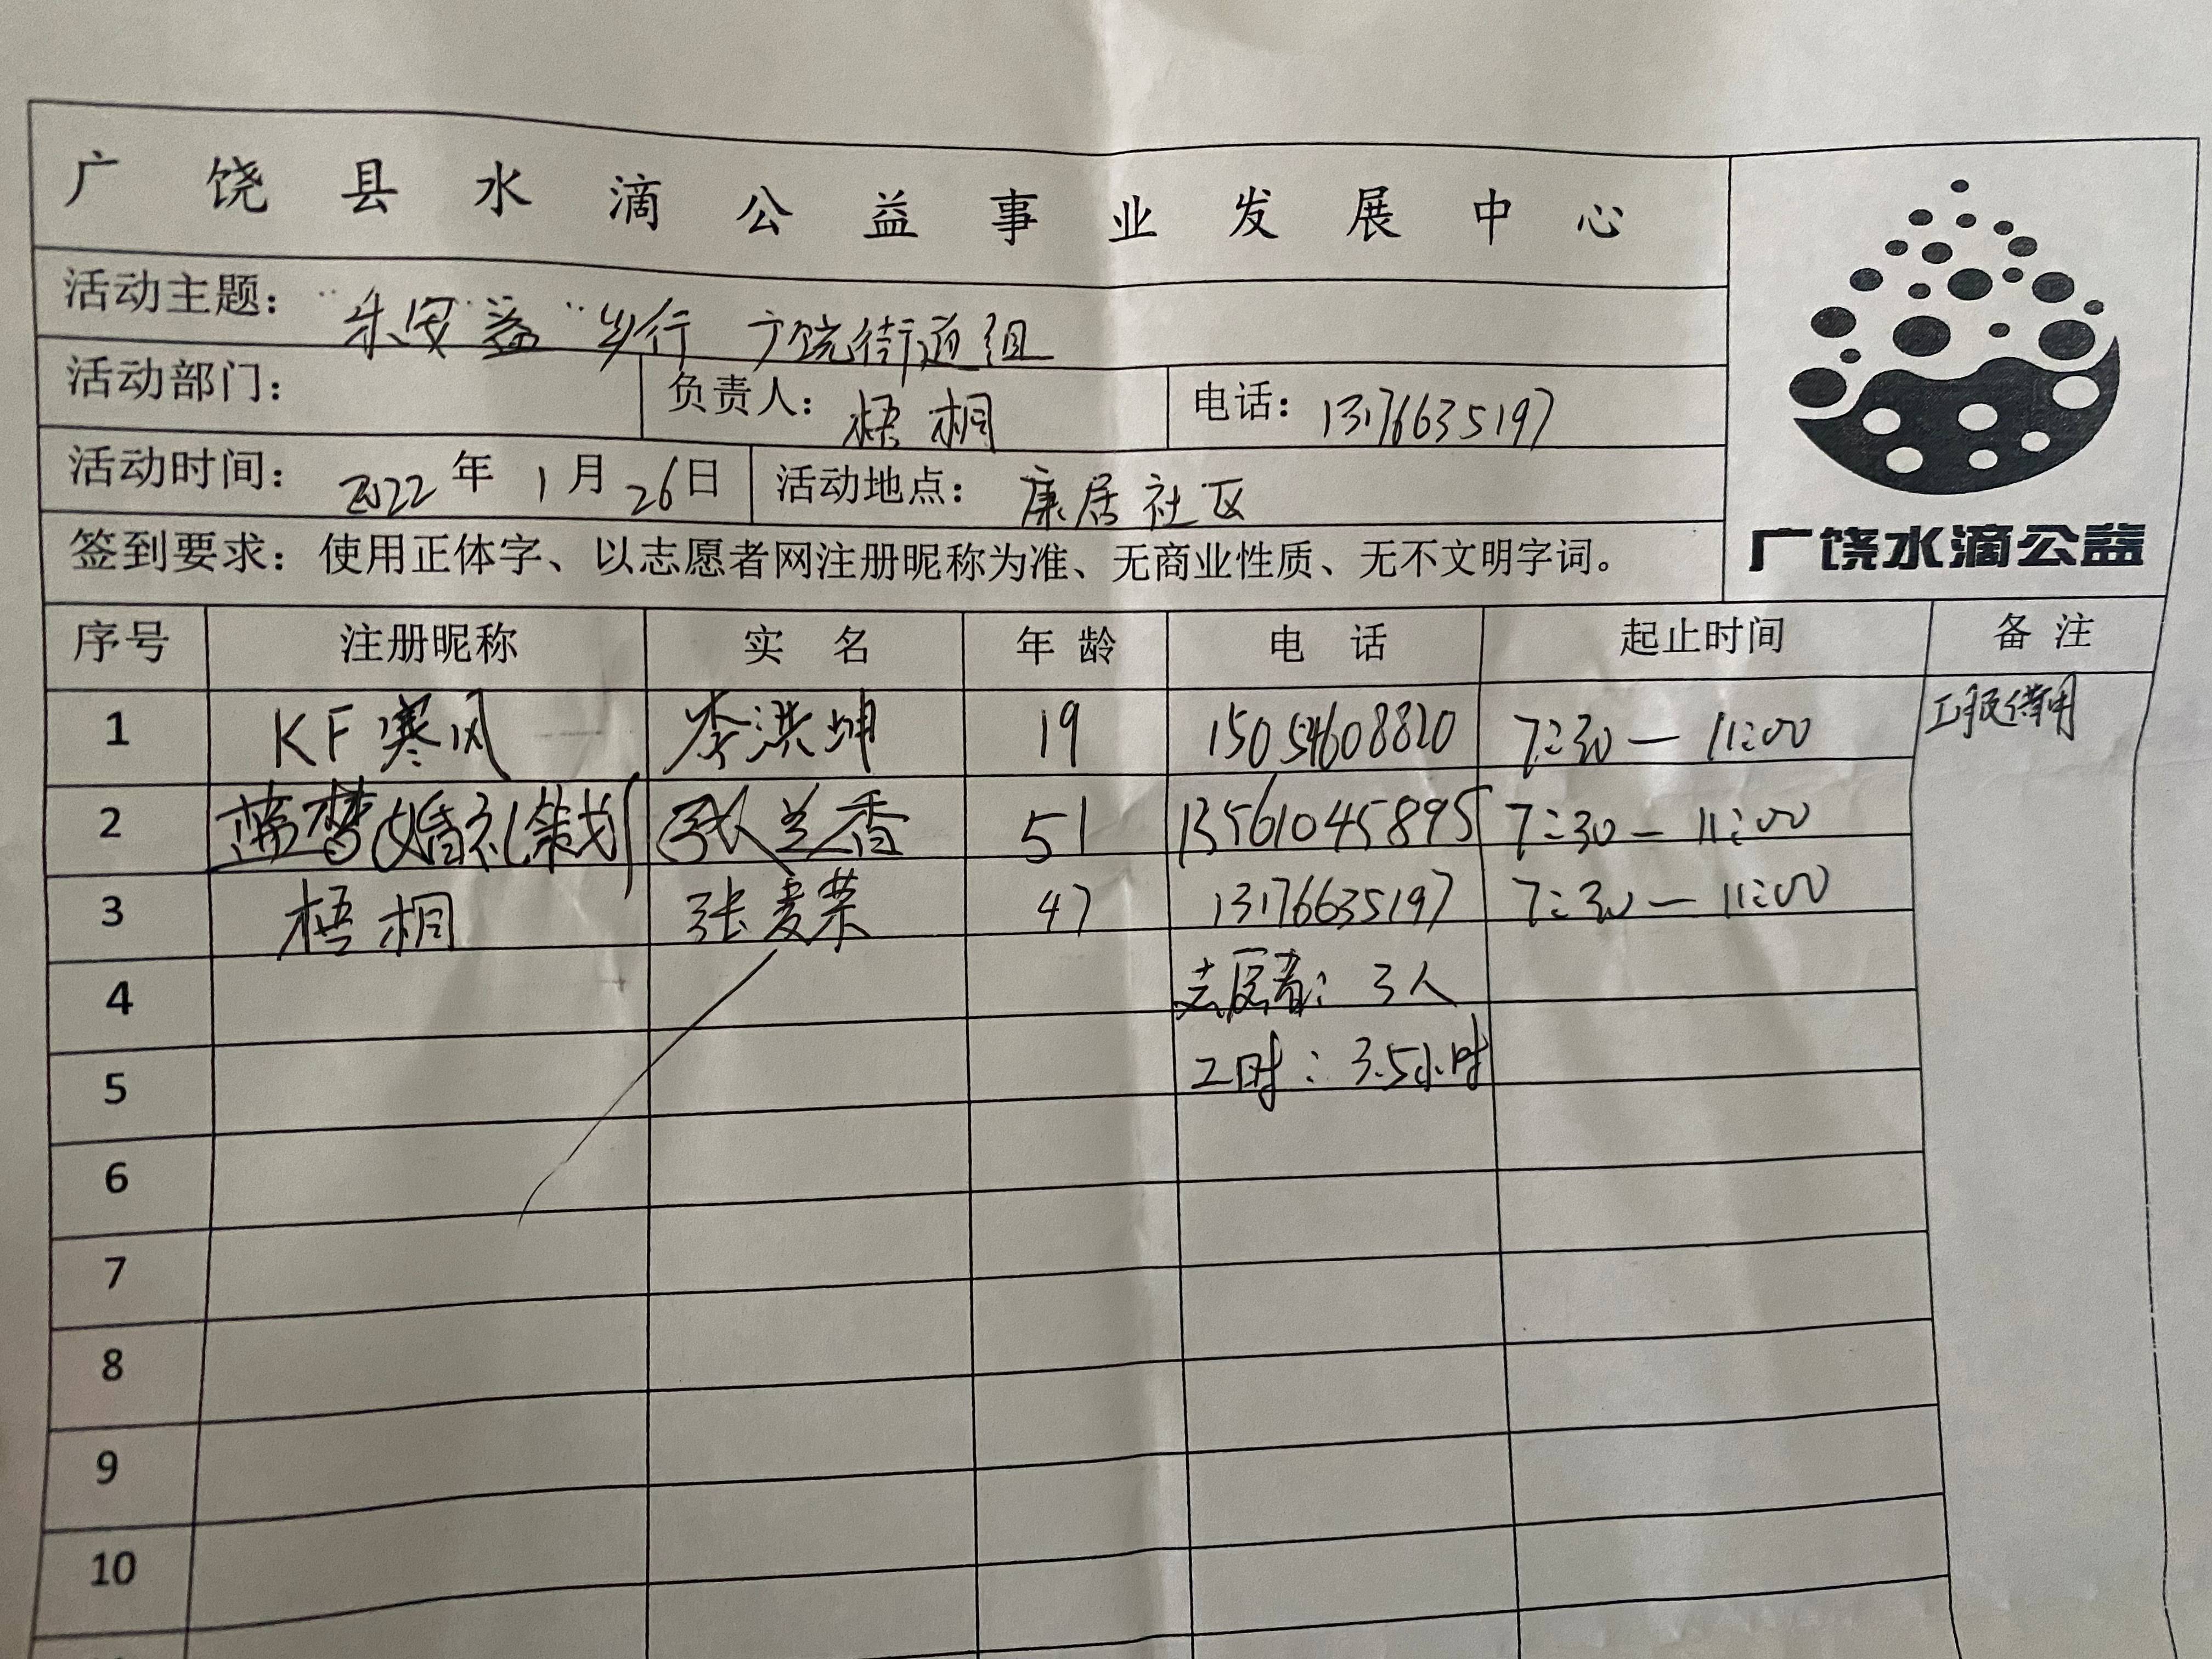 广饶县水滴公益事业发展中心
活动主题： "乐安益"步行 广饶街道组
活动部门： 负责人：梧桐 电话：13176635197
活动时间：2022年1月26日 活动地点：康居社区
签到要求：使用正体字、以志愿者网注册昵称为准、无商业性质、无不文明字词。
广饶水滴公益
序号 注册昵称 实名 年龄 电话 起止时间 备注
1 KF寒风 李洪坤 19 15054608820 7:30—11:00 工服借用
2 婚礼策划 张兰香 51 13561045895 7:30—11:00
3 梧桐 张麦荣 47 13176635197 7:30—11:00
4 志愿者：3人
5 工时：3.5小时
6
7
8
9
10